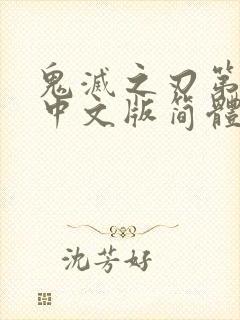 鬼滅之刃第
中文版简體
沈芳好